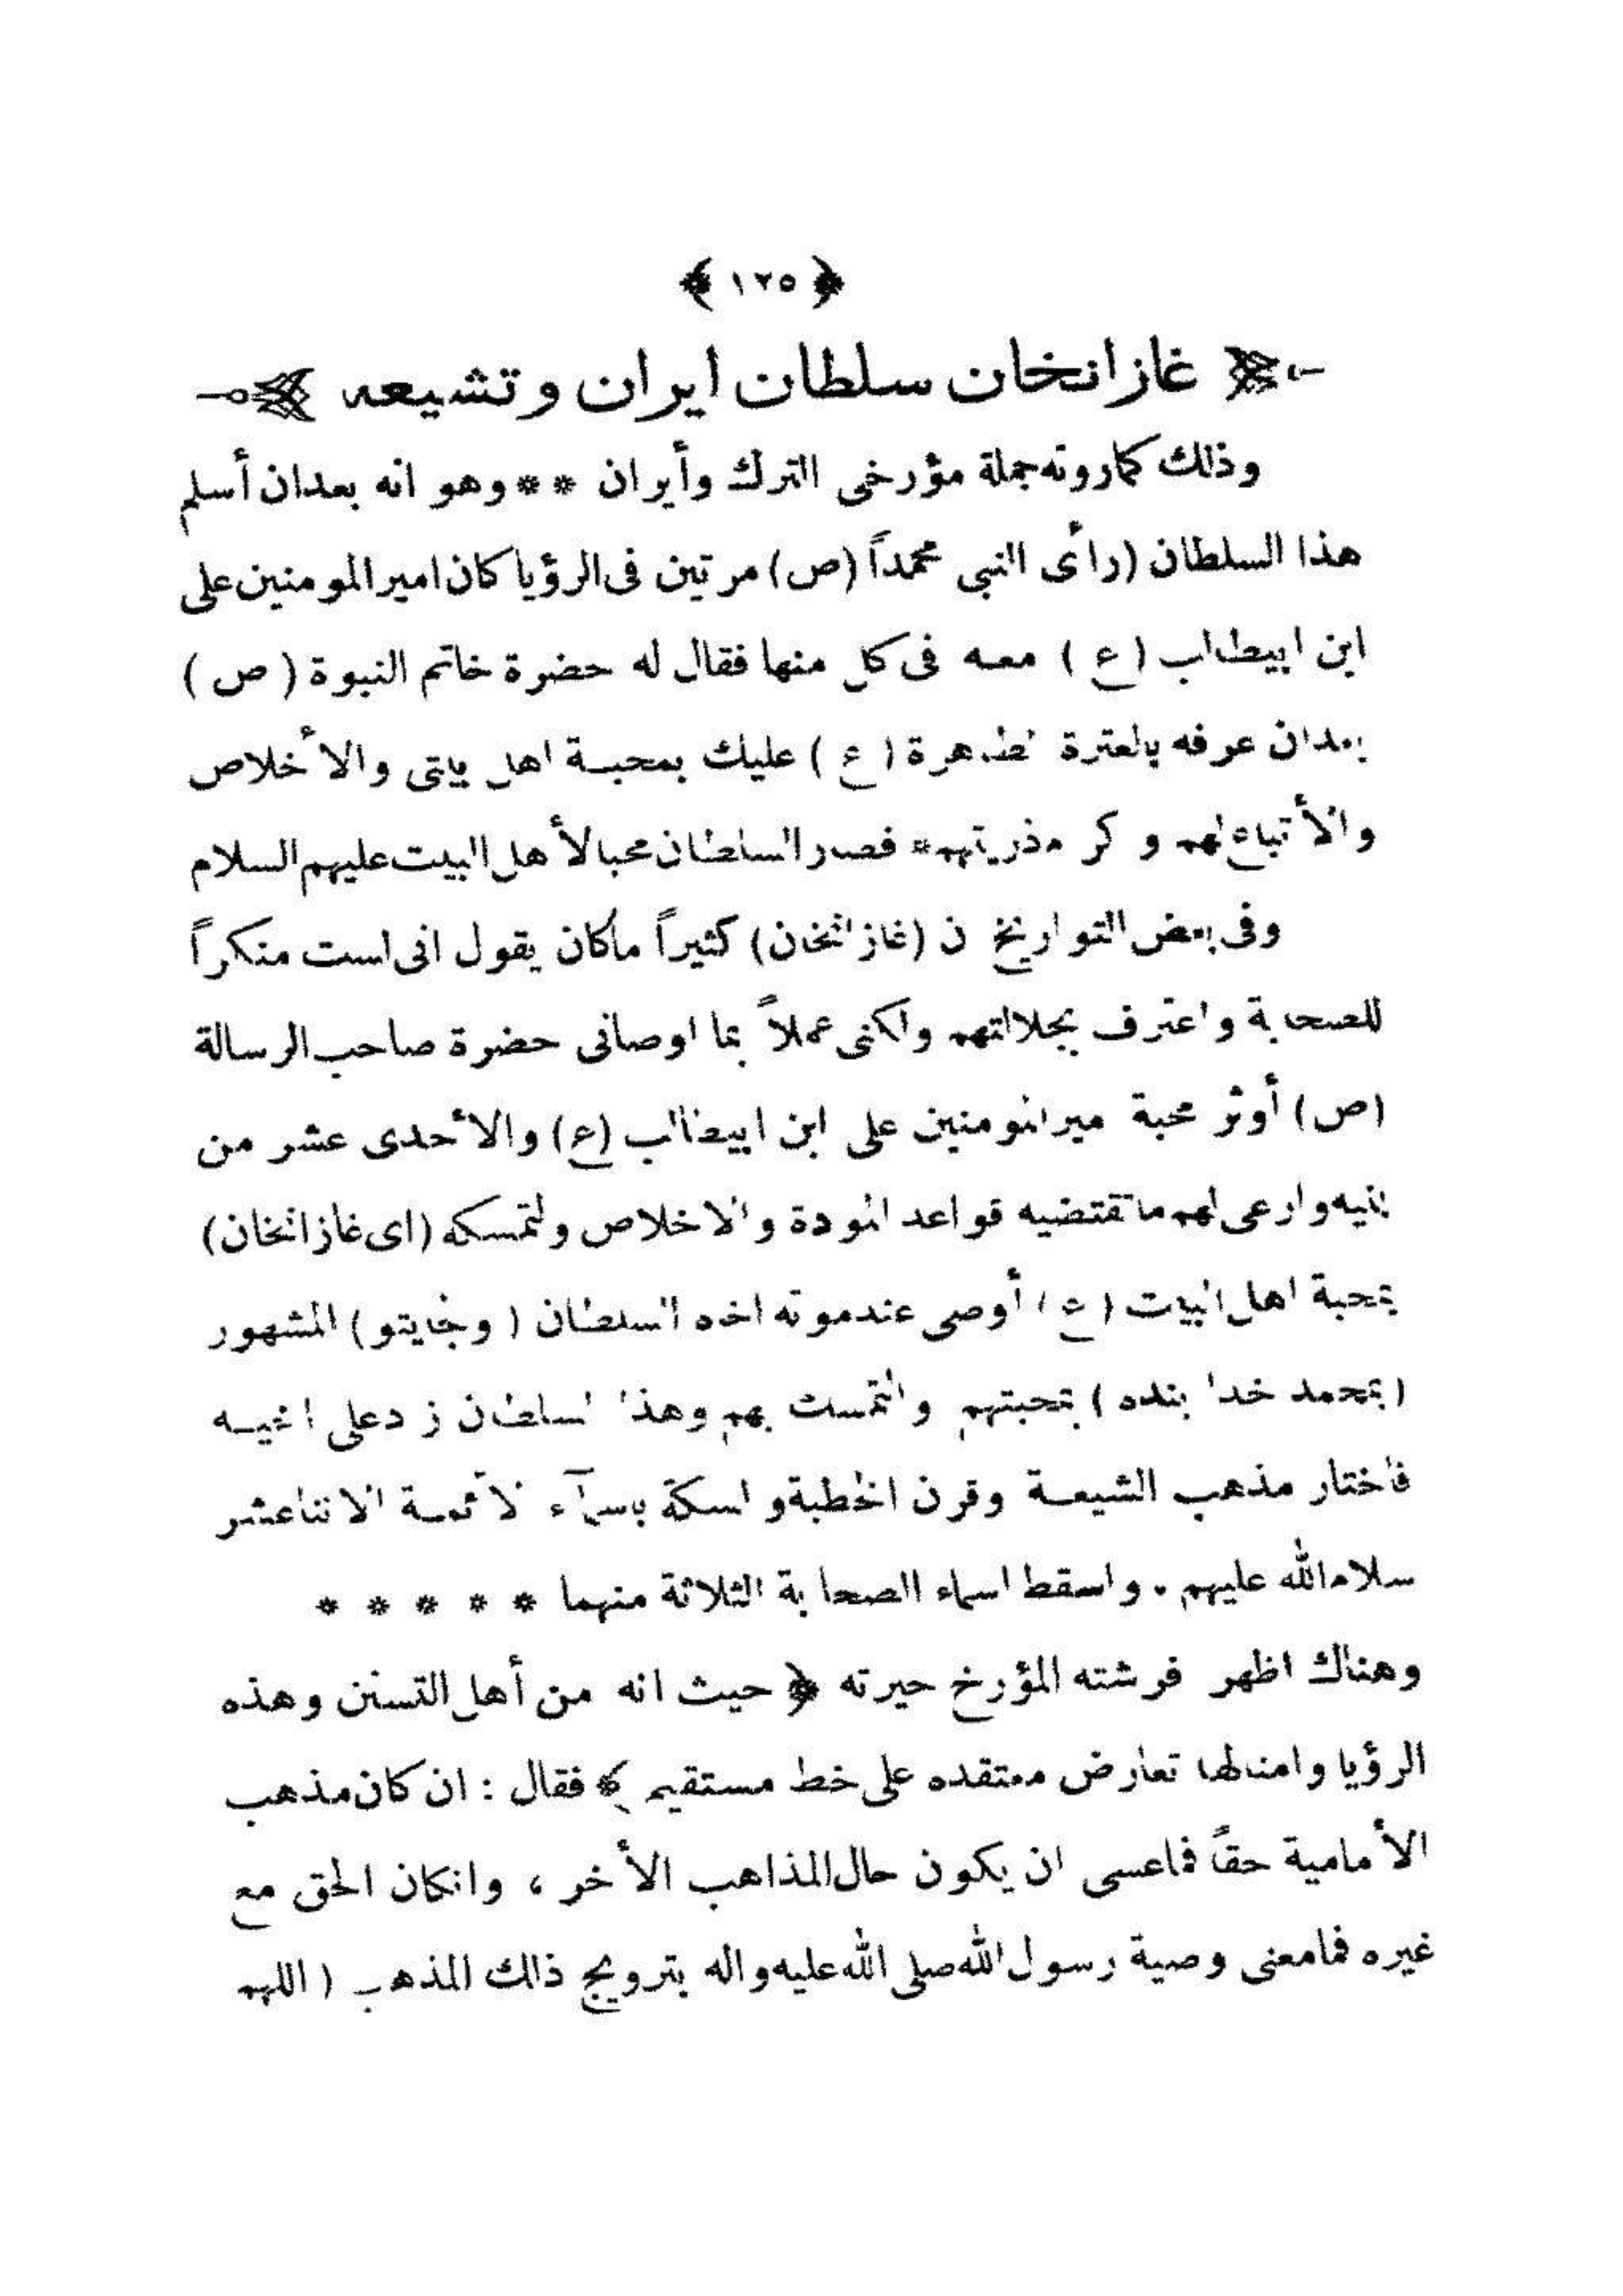 ﴿ ١٢٥ ﴾
غازانخان سلطان ايران و تشيعه
وذلك كمارونه جملة مؤرخى الترك وأيران ** وهو انه بعدان أسلم
هذا السلطان (رأى النبى محمداً (ص) مرتين فى الرؤيا كان امير المومنين على
ابن ابيطالب (ع) معه فى كل منها فقال له حضرة خاتم النبوة (ص)
بعدان عرفه بالعترة الطاهرة (ع) عليك بمحبة اهل بيتى والأخلاص
والأتباع لهم و كر مذريتهم * فصار السلطان محبا لأهل البيت عليهم السلام
وفى بعض التواريخ ن (غازانخان) كثيراً ماكان يقول انى لست منكراً
للصحابة واعترف بجلالتهم ولكنى عملاً بما اوصانى حضرة صاحب الرسالة
(ص) أوثر محبة مير المومنين على ابن ابيطالب (ع) والأحدى عشر من
بنيه وارعى لهم ماتقتضيه قواعد المودة والاخلاص ولتمسكه (اى غازانخان)
بمحبة اهل البيت (ع) أوصى عندموته اخاه السلطان (وجايتو) المشهور
(بمحمد خدا بنده) بمحبتهم والتمسك بهم وهذا السلطان زاد على اخيه
فاختار مذهب الشيعة وقرن الخطبة والسكة باسمآء الأئمة الاثناعشر
سلام الله عليهم . واسقط اسماء الصحابة الثلاثة منهما * * * * *
وهناك اظهر فرشته المؤرخ حيرته ﴿ حيث انه من أهل التسنن وهذه
الرؤيا وامثالها تعارض معتقده على خط مستقيم ﴾ فقال : ان كان مذهب
الأمامية حقاً فماعسى ان يكون حال المذاهب الأخر ، وانكان الحق مع
غيره فمامعنى وصية رسول الله صلى الله عليه واله بترويج ذالك المذهب (اللهم